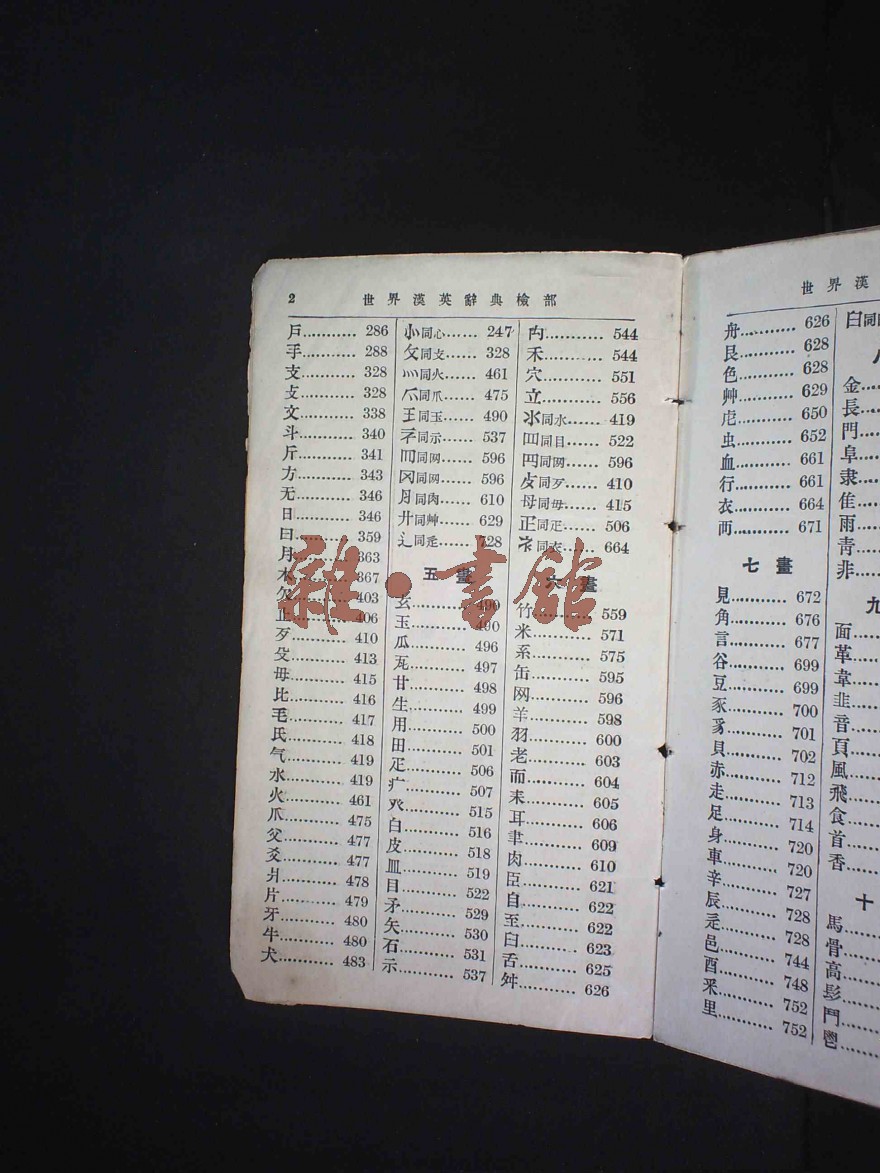 2 世界漢英辭典檢部
戶............ 286
手............ 288
支............ 328
攴............ 328
文............ 338
斗............ 340
斤............ 341
方............ 343
无............ 346
日............ 346
曰............ 359
月............ 363
木............ 367
欠............ 403
止............ 406
歹............ 410
殳............ 413
毋............ 415
比............ 416
毛............ 417
氏............ 418
气............ 419
水............ 419
火............ 461
爪............ 475
父............ 477
爻............ 477
爿............ 478
片............ 479
牙............ 480
牛............ 480
犬............ 483
㣺同心...... 247
攵同攴...... 328
灬同火...... 461
爫同爪...... 475
王同玉...... 490
礻同示...... 537
罒同网...... 596
冈同网...... 596
月同肉...... 610
廾同艸...... 629
辶同辵...... 728
五畫
玄............ 490
玉............ 490
瓜............ 496
瓦............ 497
甘............ 498
生............ 499
用............ 500
田............ 501
疋............ 506
疒............ 507
癶............ 515
白............ 516
皮............ 518
皿............ 519
目............ 522
矛............ 529
矢............ 530
石............ 531
示............ 537
禸............ 544
禾............ 544
穴............ 551
立............ 556
氺同水...... 419
罒同目...... 522
同网...... 596
同歹...... 410
母同毋...... 415
正同疋...... 506
衤同衣...... 664
六畫
竹............ 559
米............ 571
糸............ 575
缶............ 595
网............ 596
羊............ 598
羽............ 600
老............ 603
而............ 604
耒............ 605
耳............ 606
聿............ 609
肉............ 610
臣............ 621
自............ 622
至............ 622
臼............ 623
舌............ 625
舛............ 626
世界漢
舟............ 626
艮............ 628
色............ 628
艸............ 629
虍............ 650
虫............ 652
血............ 661
行............ 661
衣............ 664
襾............ 671
七畫
見............ 672
角............ 676
言............ 677
谷............ 699
豆............ 699
豕............ 700
豸............ 701
貝............ 702
赤............ 712
走............ 713
足............ 714
身............ 720
車............ 720
辛............ 727
辰............ 728
辵............ 728
邑............ 744
酉............ 748
釆............ 752
里............ 752
臼同
金
長
門
阜
隶
隹
雨
青
非
九
面
革
韋
韭
音
頁
風
飛
食
首
香
十
馬
骨
高
髟
鬥
鬯
雜·書館